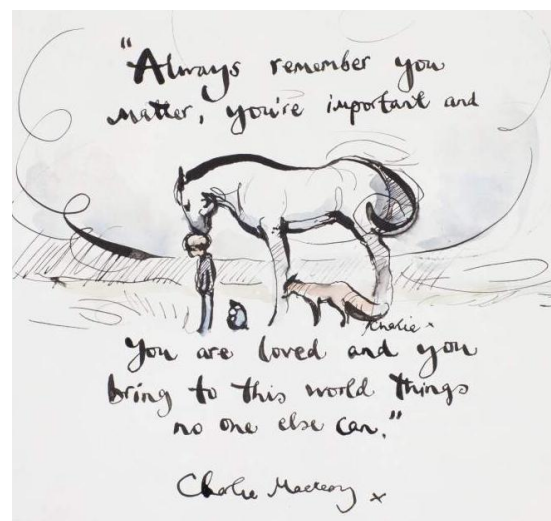 "Always remember you
matter, you're important and
Charlie x
you are loved and you
bring to this world things
no one else can."
Charlie Mackesy x